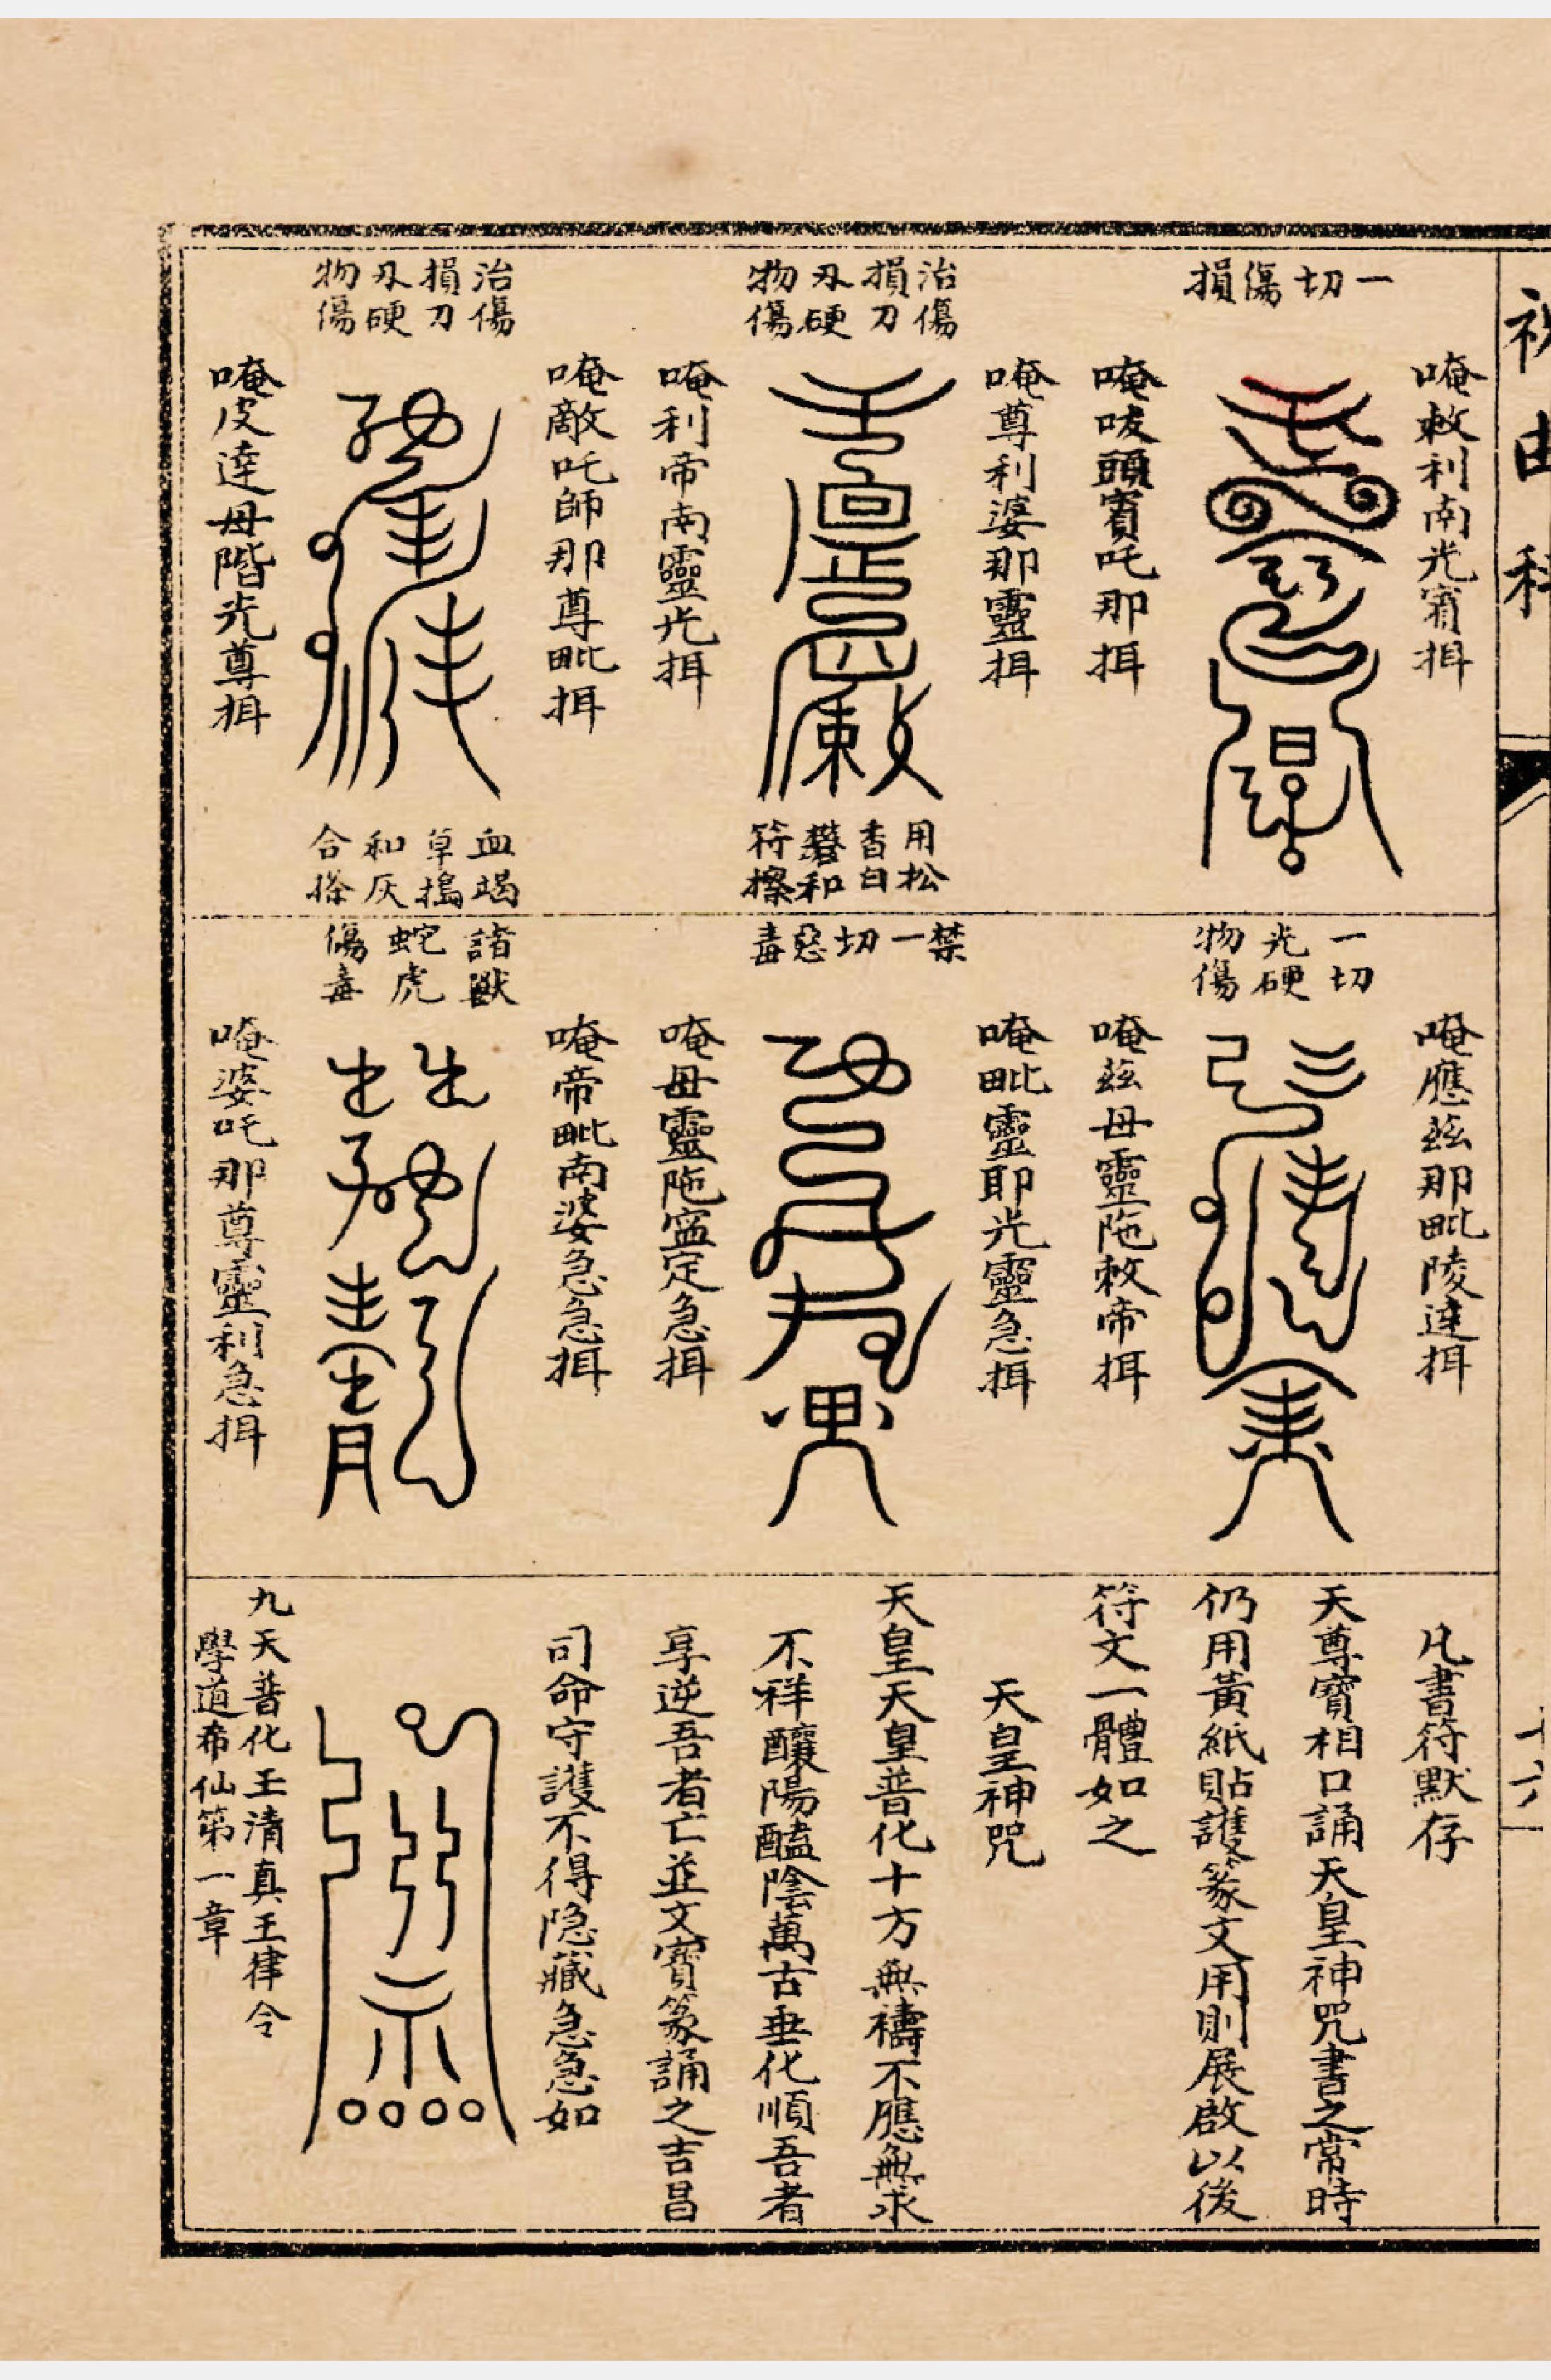 祝由科
十六
一切傷損
唵敕利南光宥揖
唵唛頭賓吒那揖
治傷
損刀
刄硬
物傷
唵尊利婆那靈揖
唵利帝南靈光揖
用松
香白
礬和
符擦
治傷
損刀
刄硬
物傷
唵敵吒師那尊毗揖
唵皮達母階光尊揖
血竭
草搗
和灰
合搽
一切
光硬
物傷
唵應玆那毗陵達揖
唵玆母靈陁敕帝揖
禁一切惡毒
唵毗靈耶光靈急揖
唵母靈陁寍定急揖
諸獸
蛇虎
傷毒
唵帝毗南婆急急揖
唵婆吒那尊靈利急揖
凡書符默存
天尊寶相口誦天皇神咒書之常時
仍用黃紙貼護篆文用則展啟以後
符文一體如之
天皇神咒
天皇天皇普化十方無禱不應無求
不祥釀陽醘陰萬古垂化順吾者
享逆吾者亡並文寶篆誦之吉昌
司命守護不得隐藏急急如
九天普化玉清真王律令
學道希仙第一章